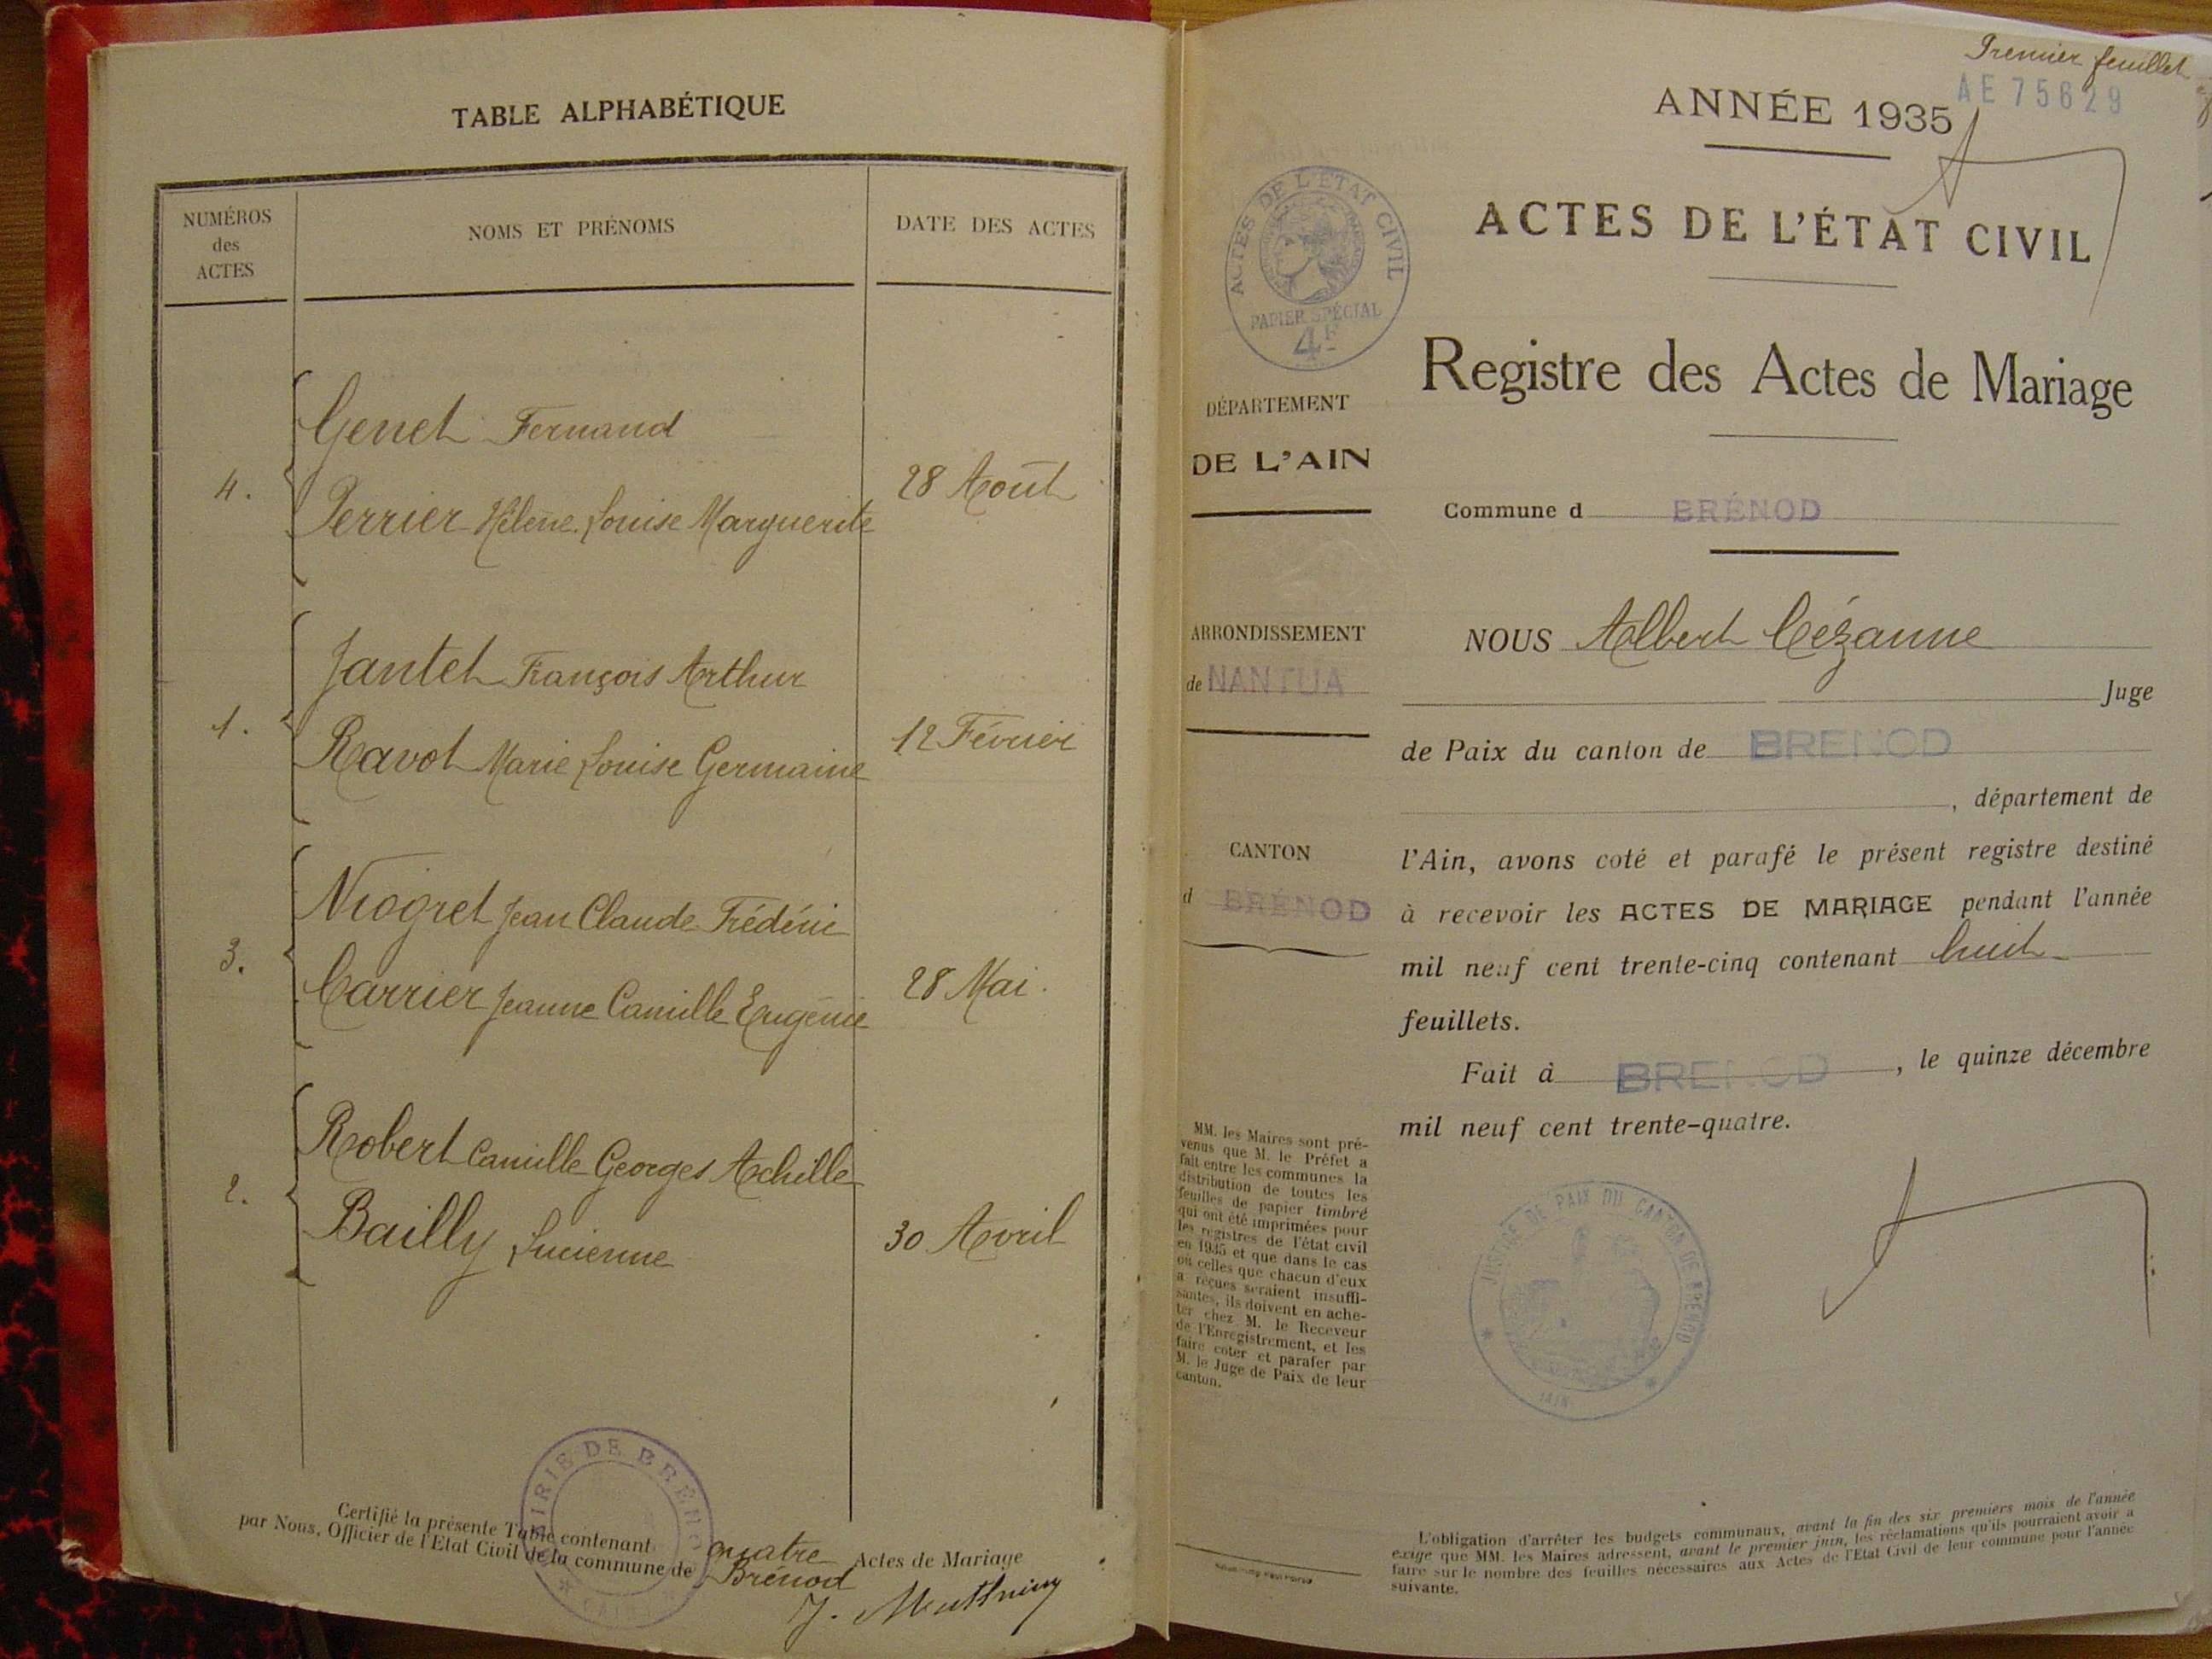 TABLE ALPHABÉTIQUE
NUMÉROS
des
ACTES
NOMS ET PRÉNOMS
DATE DES ACTES
Genet Fernand
4.
28 Août
Perrier Hélène Louise Marguerite
Jantet François Arthur
1.
12 Février
Ravot Marie Louise Germaine
Niogret Jean Claude Frédéric
3.
28 Mai.
Carrier Jeanne Camille Eugénie
Robert Camille Georges Achille
2.
30 Avril
Bailly Lucienne
Certifié la présente Table contenant quatre Actes de Mariage
par Nous, Officier de l'Etat Civil de la commune de Brénod
MAIRIE DE BRÉNOD
Premier feuillet
AE 75629
ANNÉE 1935
ACTES DE L'ÉTAT CIVIL
ACTES DE L'ETAT CIVIL
PAPIER SPÉCIAL
4F
Registre des Actes de Mariage
DÉPARTEMENT
DE L'AIN
Commune d BRÉNOD
ARRONDISSEMENT
de NANTUA
NOUS Albert Cézanne
Juge
de Paix du canton de BRENOD
, département de
CANTON
d BRÉNOD
l'Ain, avons coté et parafé le présent registre destiné
à recevoir les ACTES DE MARIAGE pendant l'année
mil neuf cent trente-cinq contenant huit
feuillets.
Fait à BRENOD, le quinze décembre
mil neuf cent trente-quatre.
MM. les Maires sont pré-
venus que M. le Préfet a
fait entre les communes la
distribution de toutes les
feuilles de papier timbré
qui ont été imprimées pour
les registres de l'état civil
en 1935 et que dans le cas
où celles que chacun d'eux
a reçues seraient insuffi-
santes, ils doivent en ache-
ter chez M. le Receveur
de l'Enregistrement, et les
faire coter et parafer par
M. le Juge de Paix de leur
canton.
JUSTICE DE PAIX DU CANTON DE BRENOD
AIN
L'obligation d'arrêter les budgets communaux, avant la fin des six premiers mois de l'année
exige que MM. les Maires adressent, avant le premier juin, les réclamations qu'ils pourraient avoir a
faire sur le nombre des feuilles nécessaires aux Actes de l'Etat Civil de leur commune pour l'année
suivante.